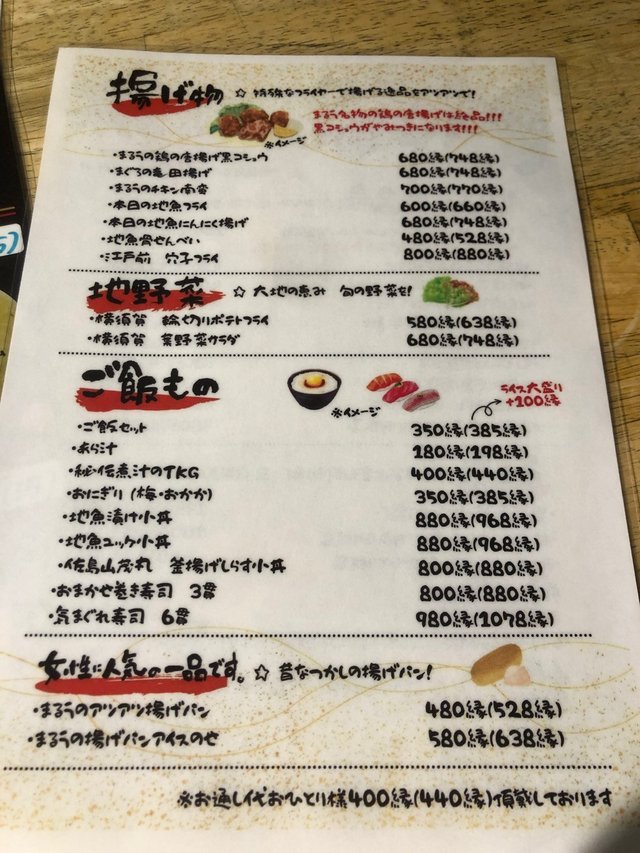 揚げ物 ☆ 特殊なフライヤーで揚げる逸品をアツアツで!
まるう名物の鶏の唐揚げは絶品!!!
黒コショウがやみつきになります!!!
※イメージ
・まるうの鶏の唐揚げ黒コショウ 680縁(748縁)
・まぐろの竜田揚げ 680縁(748縁)
・まるうのチキン南蛮 700縁(770縁)
・本日の地魚フライ 600縁(660縁)
・本日の地魚にんにく揚げ 680縁(748縁)
・地魚骨せんべい 480縁(528縁)
・江戸前 穴子フライ 800縁(880縁)
地野菜 ☆ 大地の恵み 旬の野菜を!
・横須賀 輪切りポテトフライ 580縁(638縁)
・横須賀 葉野菜サラダ 680縁(748縁)
ご飯もの
※イメージ
ライス大盛り
+100縁
・ご飯セット 350縁(385縁)
・あら汁 180縁(198縁)
・秘伝煮汁のTKG 400縁(440縁)
・おにぎり(梅・おかか) 350縁(385縁)
・地魚漬け小丼 880縁(968縁)
・地魚ユッケ小丼 880縁(968縁)
・佐島山茂丸 釜揚げしらす小丼 800縁(880縁)
・おまかせ巻き寿司 3貫 800縁(880縁)
・気まぐれ寿司 6貫 980縁(1078縁)
女性に人気の一品です。 ☆ 昔なつかしの揚げパン!
・まるうのアツアツ揚げパン 480縁(528縁)
・まるうの揚げパンアイスのせ 580縁(638縁)
※お通し代おひとり様400縁(440縁)頂戴しております